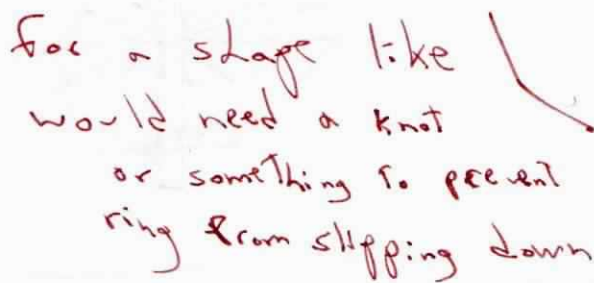 for a shape like
would need a knot
or something to prevent
ring from slipping down